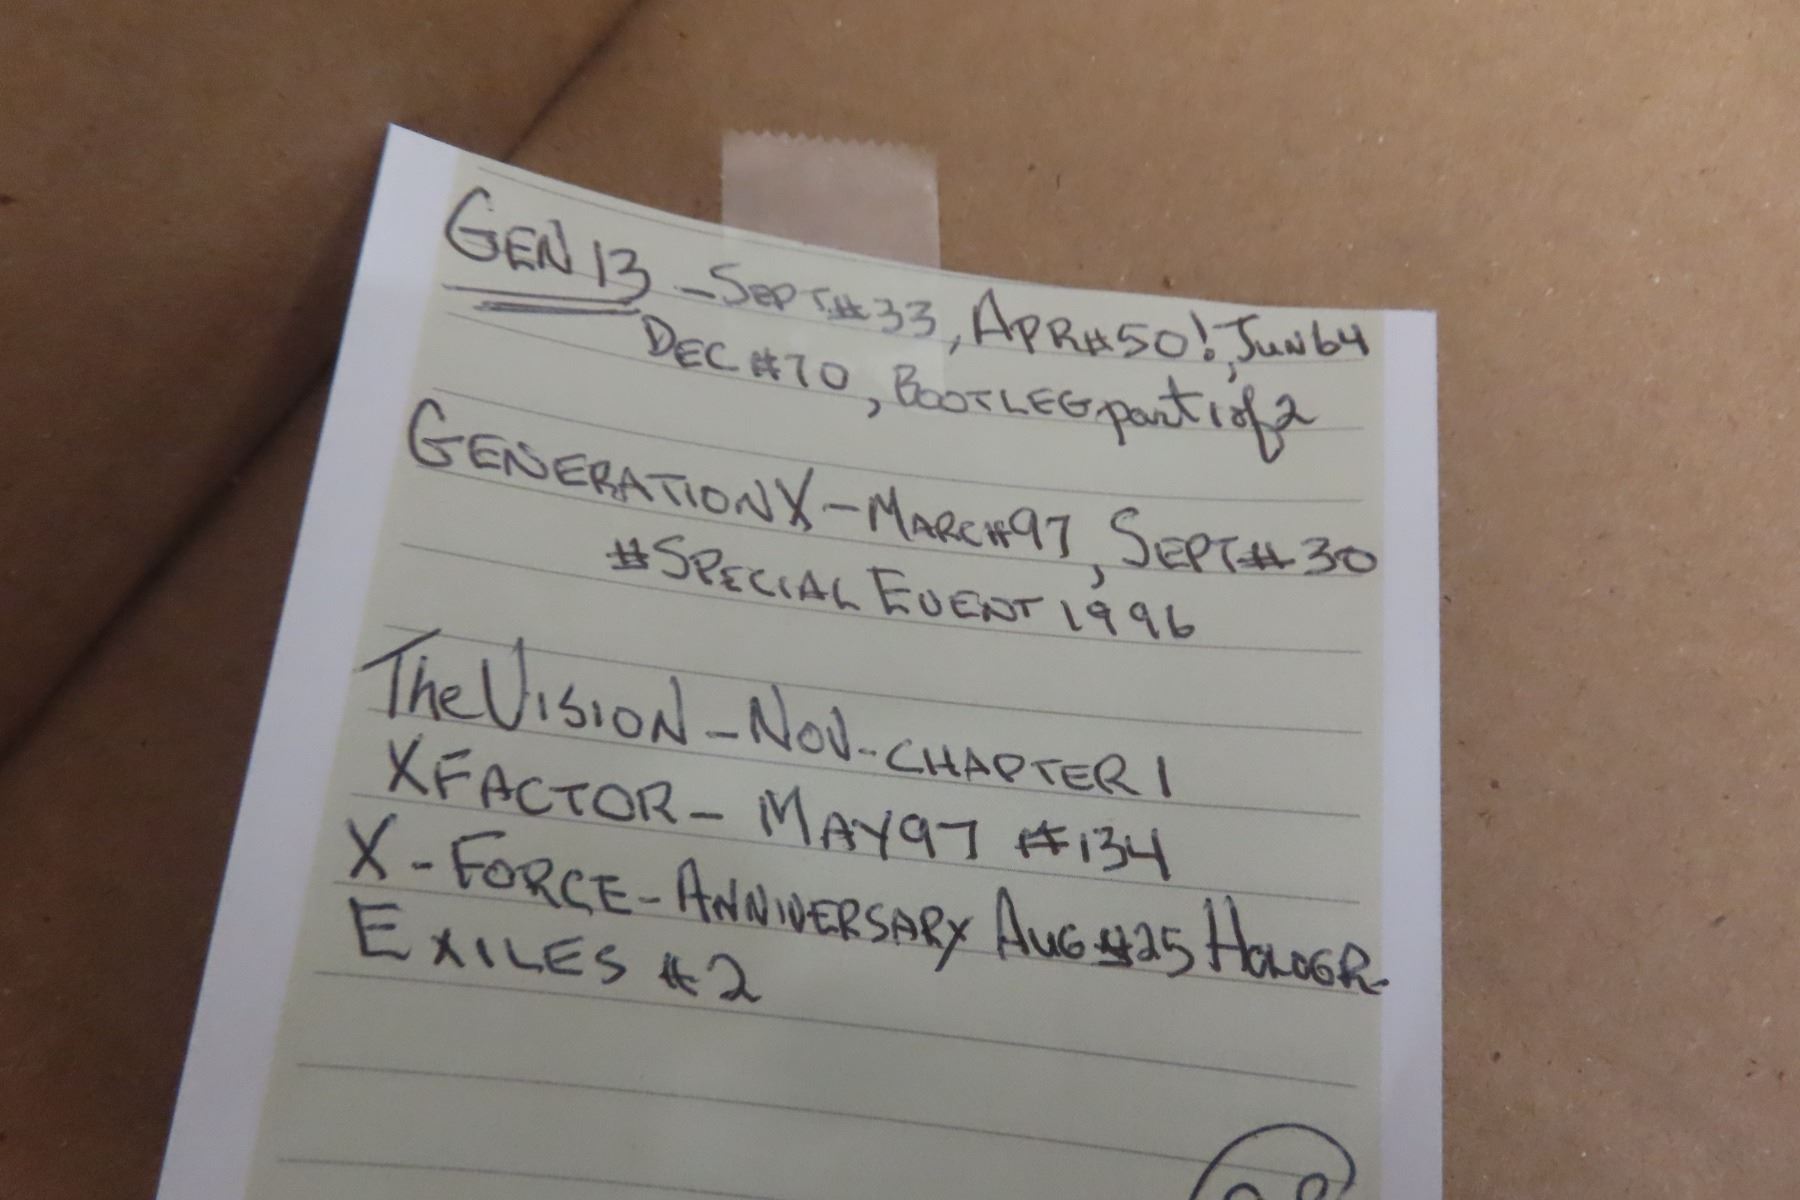 GEN 13 - SEPT#33, APR#50!, JUN 64
DEC #70, BOOTLEG part 1 of 2
GENERATION X - MARCH#97, SEPT#30
#SPECIAL EVENT 1996
The VISION - NOV - CHAPTER 1
XFACTOR - MAY97 #134
X-FORCE - ANNIVERSARY AUG#25 HOLOGR.
EXILES #2